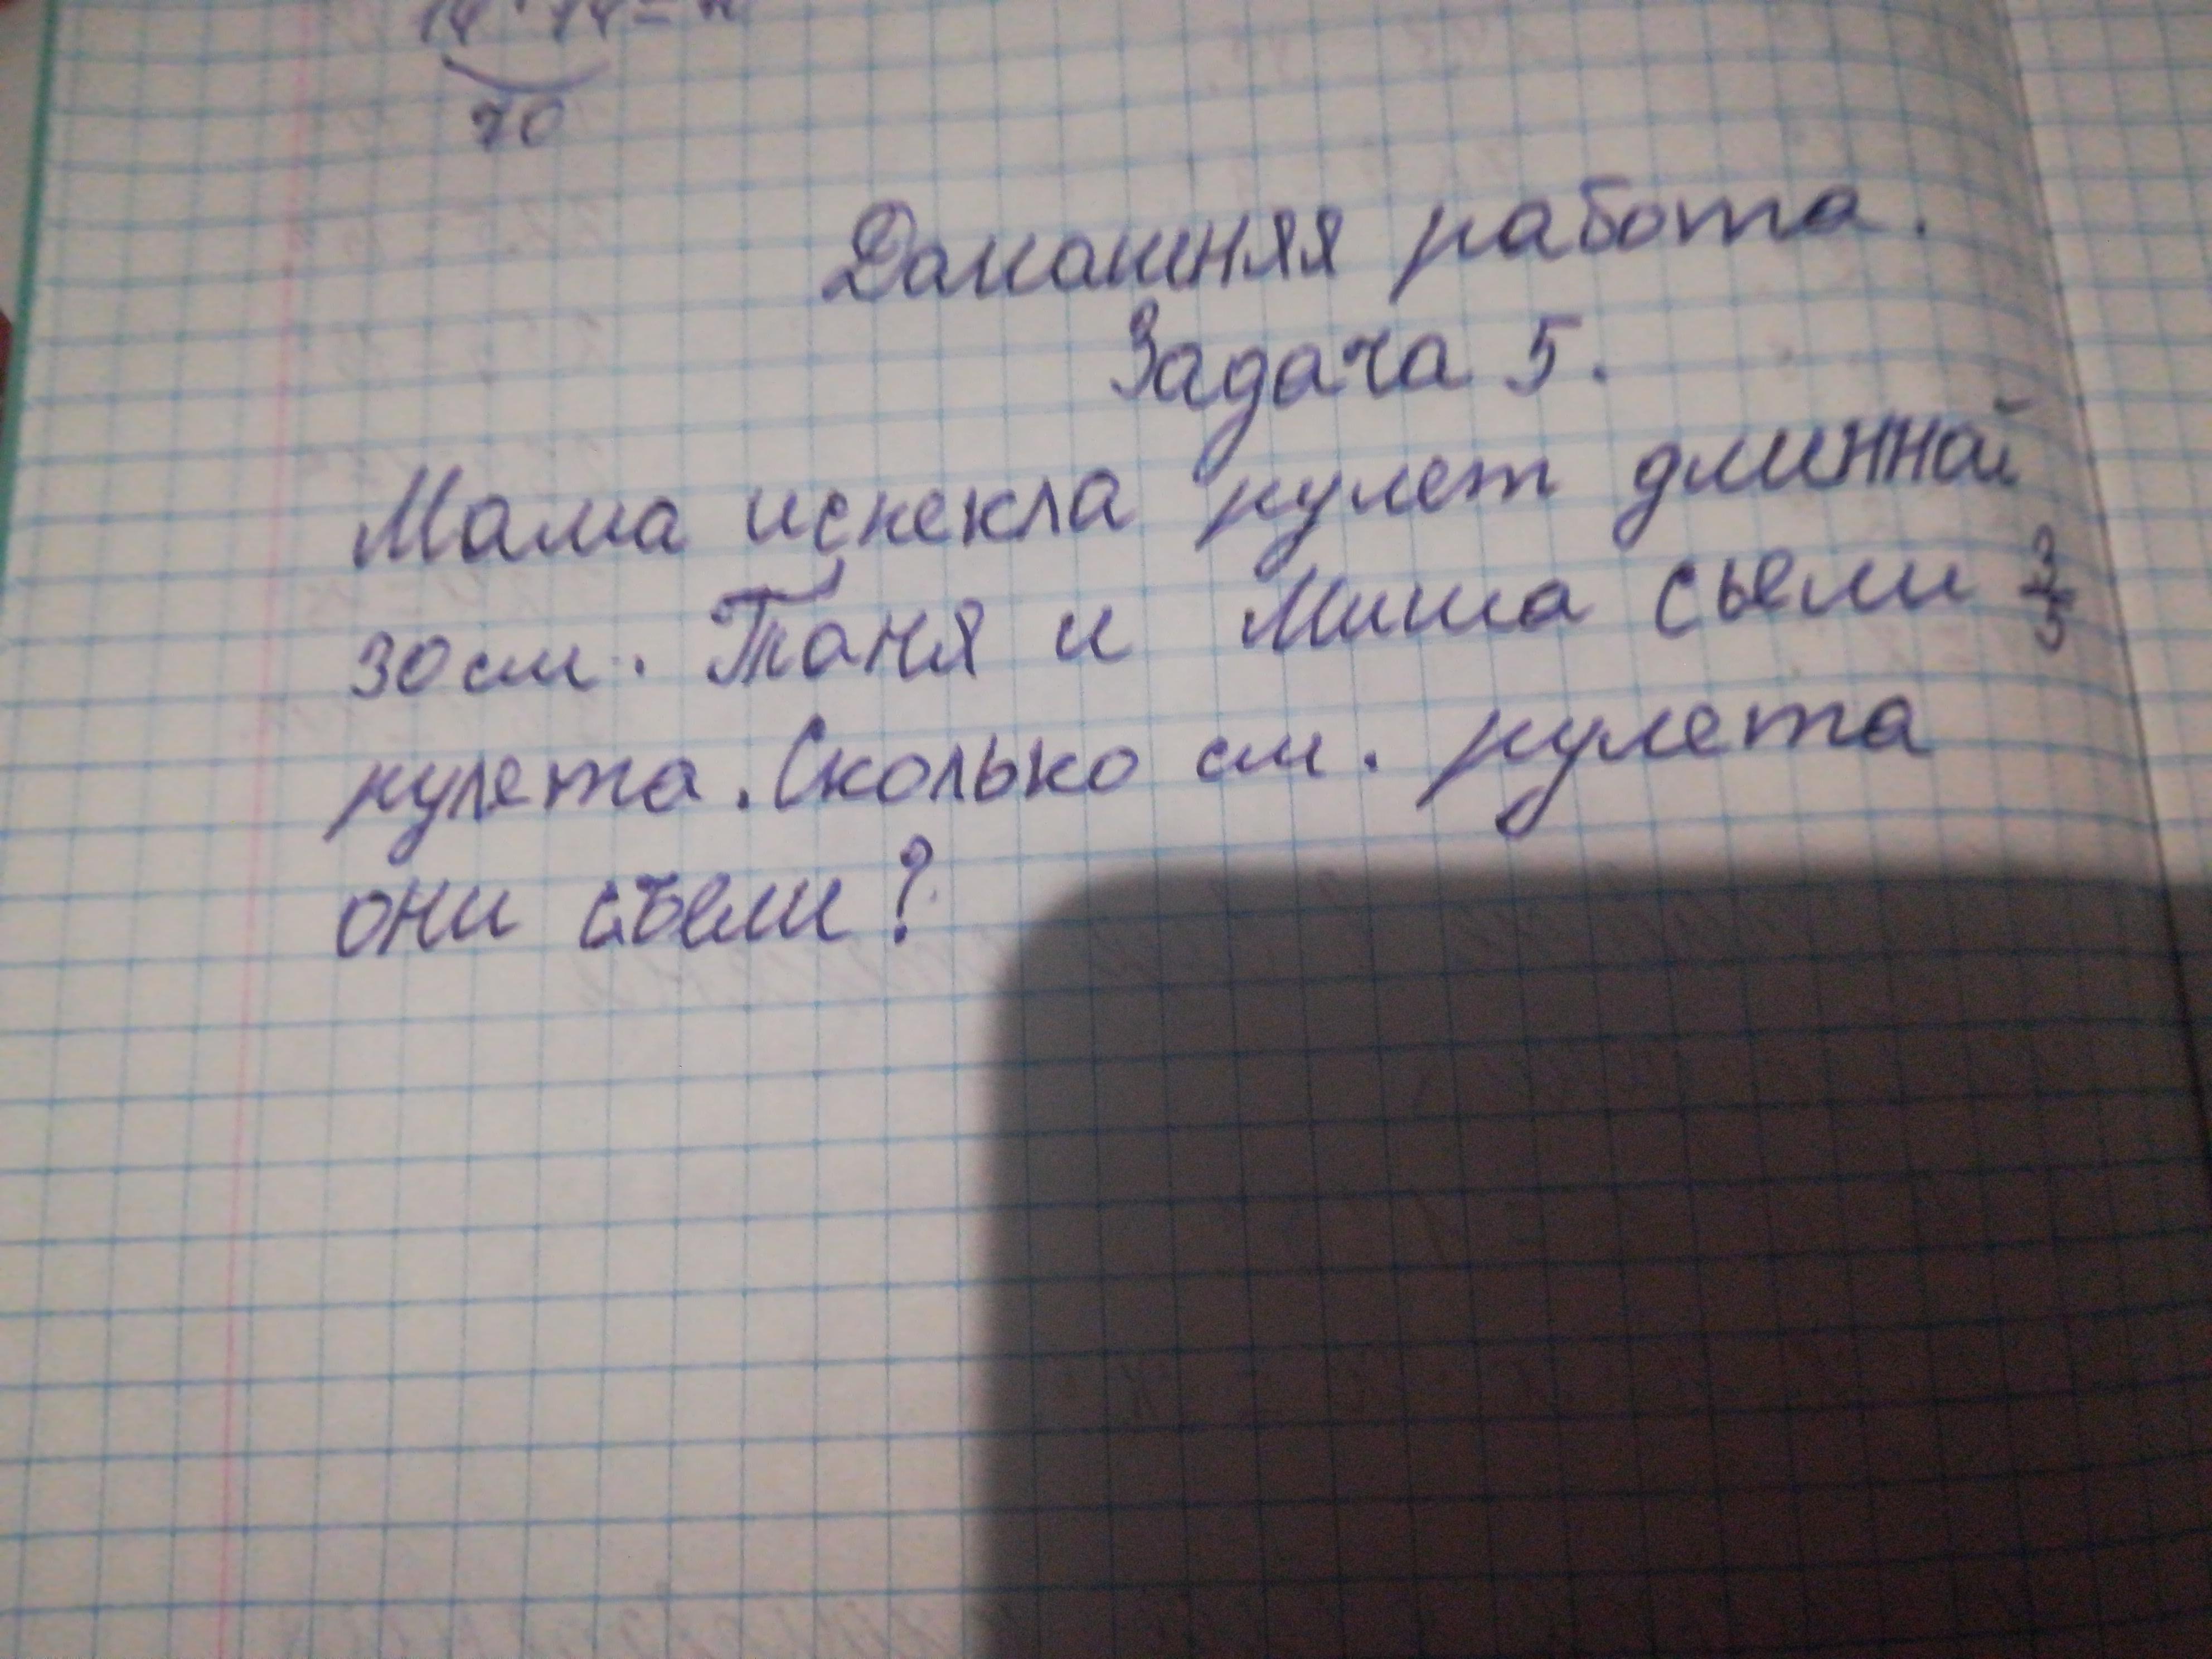 70
Домашняя работа.
Задача 5.
Мама испекла рулет длинной
30 см. Таня и Миша сьели 3/5
рулета. Сколько см. рулета
они съели?